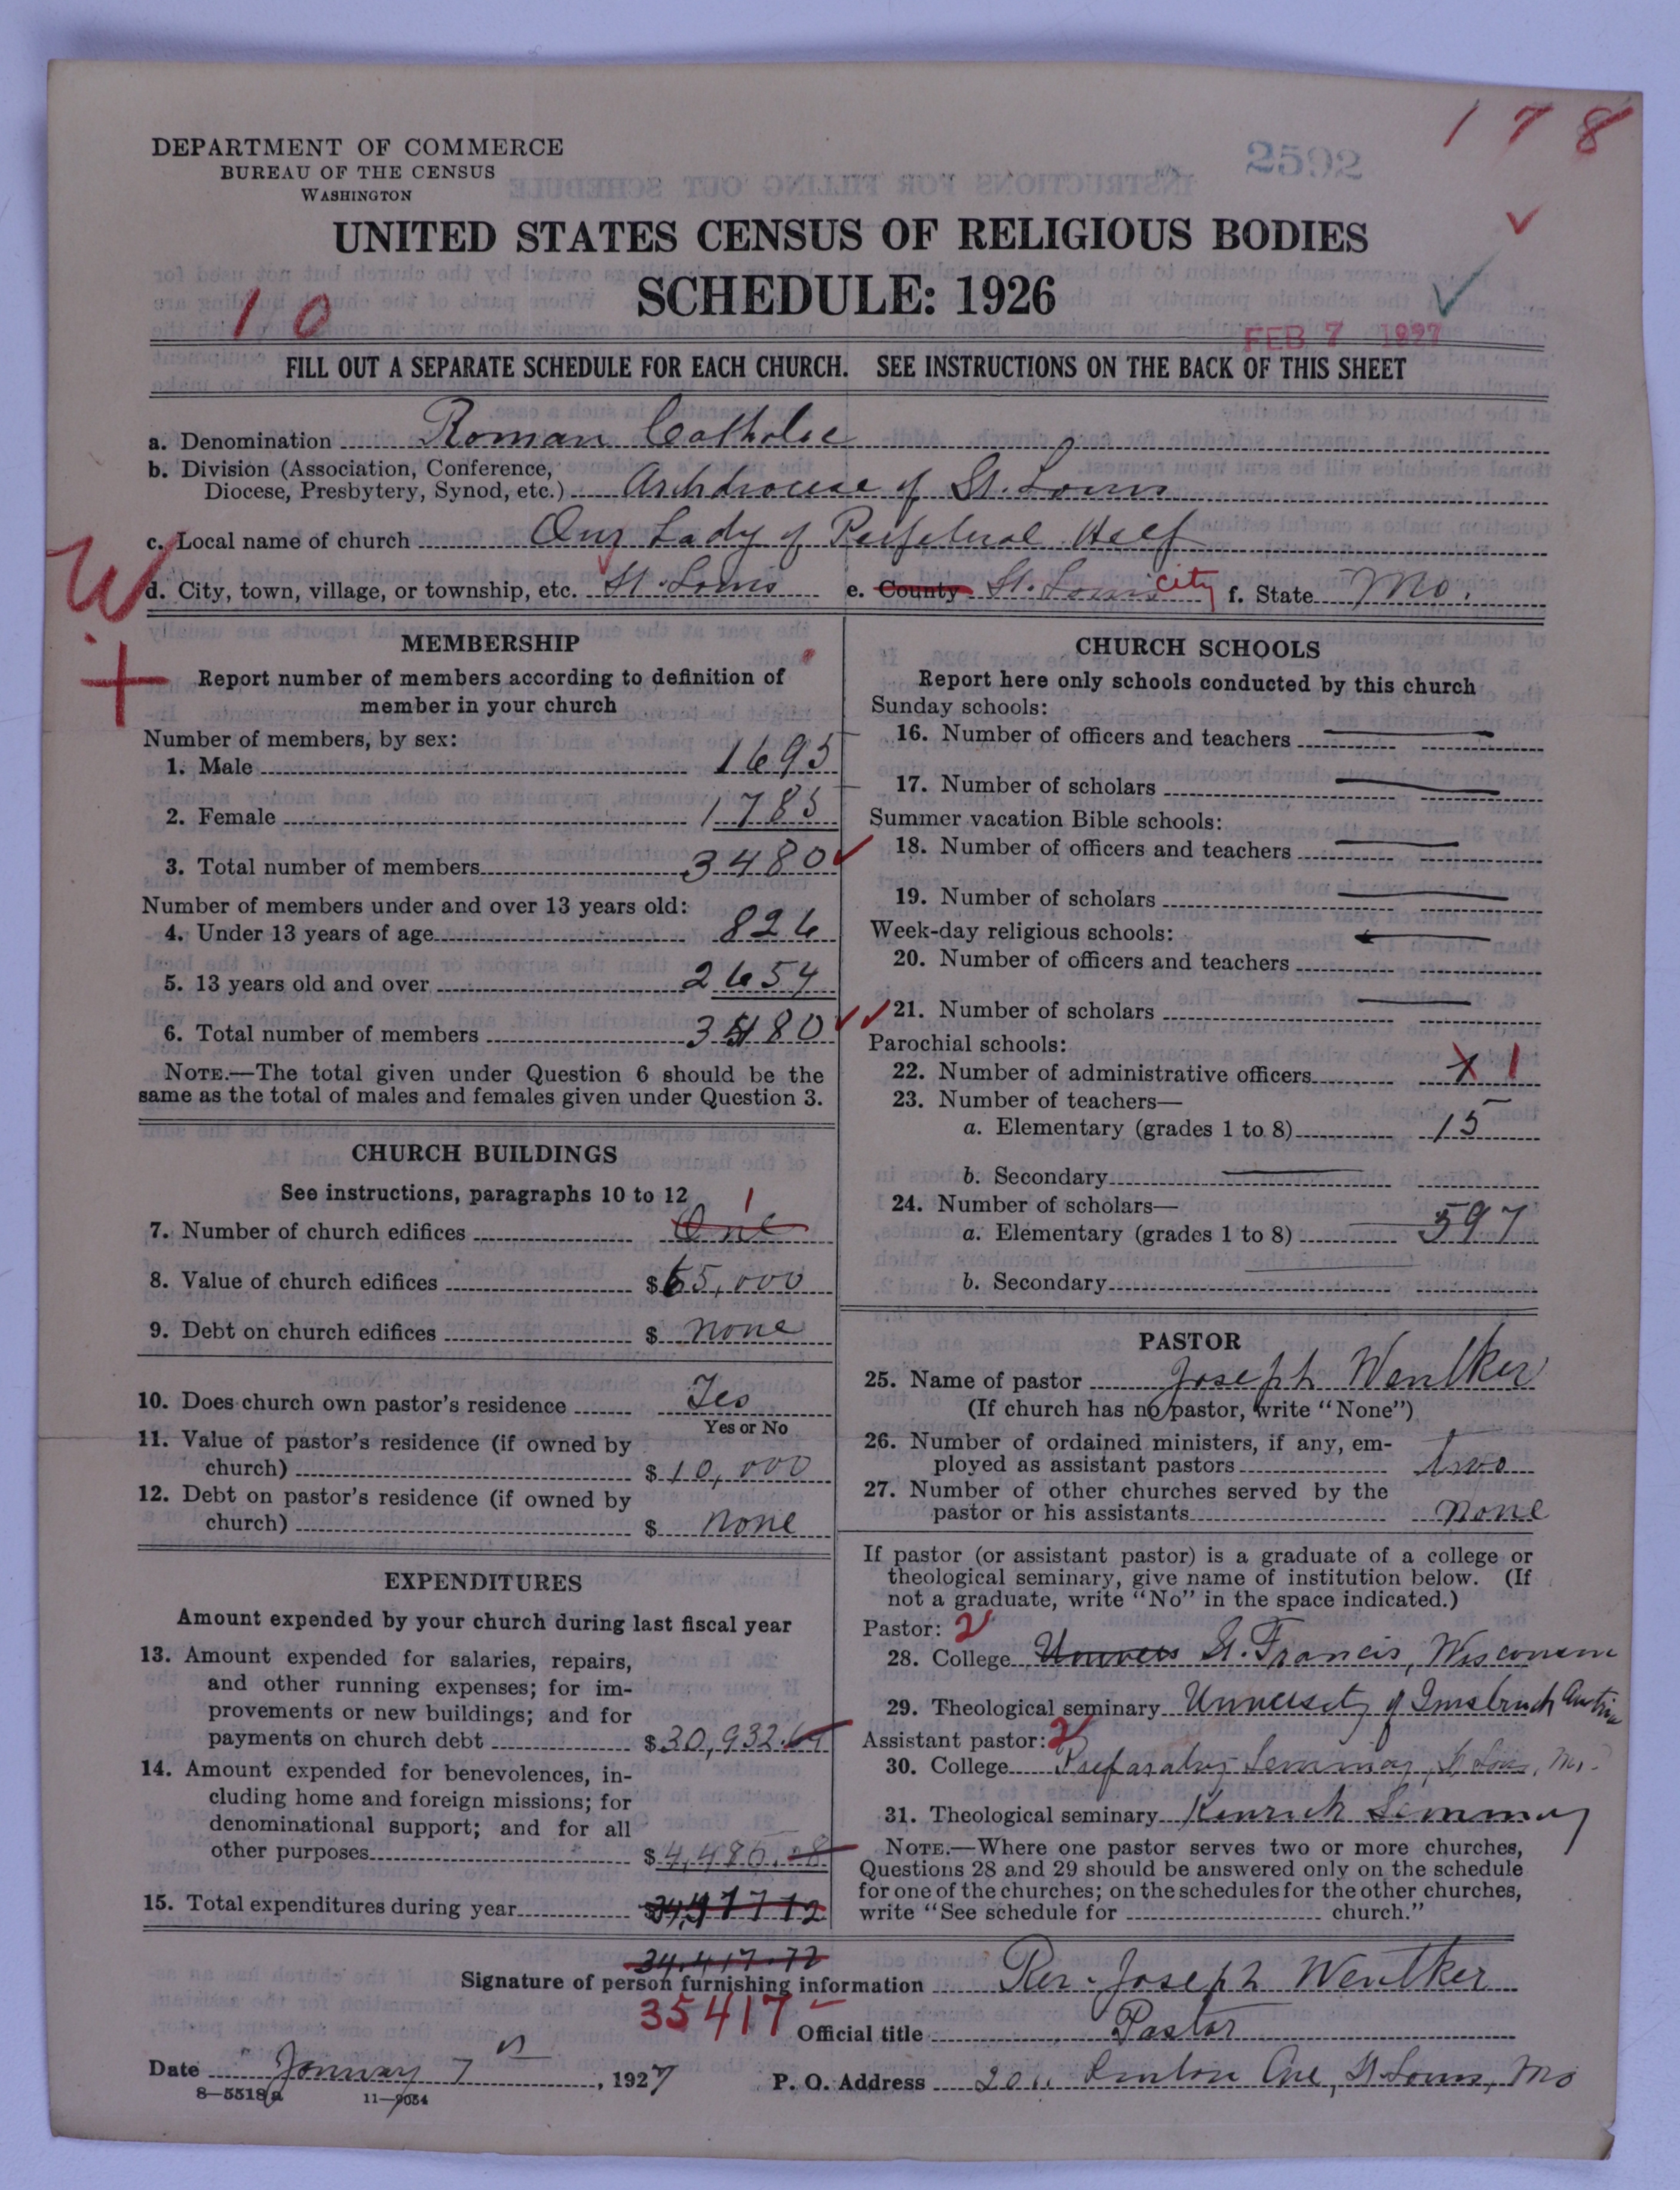 178
DEPARTMENT OF COMMERCE
BUREAU OF THE CENSUS
WASHINGTON
2592
UNITED STATES CENSUS OF RELIGIOUS BODIES
SCHEDULE: 1926
10
FEB 7 1927
FILL OUT A SEPARATE SCHEDULE FOR EACH CHURCH. SEE INSTRUCTIONS ON THE BACK OF THIS SHEET
a. Denomination Roman Catholic
b. Division (Association, Conference,
Diocese, Presbytery, Synod, etc.) Archdiocese of St. Louis
c. Local name of church Our Lady of Perpetual Help
W
d. City, town, village, or township, etc. St. Louis e. County St. Louis City f. State Mo.
MEMBERSHIP
Report number of members according to definition of
member in your church
Number of members, by sex:
1. Male 1695
2. Female 1785
3. Total number of members 3480
Number of members under and over 13 years old:
4. Under 13 years of age 826
5. 13 years old and over 2654
6. Total number of members 3480
NOTE.—The total given under Question 6 should be the
same as the total of males and females given under Question 3.
CHURCH BUILDINGS
See instructions, paragraphs 10 to 12
7. Number of church edifices One 1
8. Value of church edifices $65,000
9. Debt on church edifices $ none
10. Does church own pastor's residence Yes
Yes or No
11. Value of pastor's residence (if owned by
church) $10,000
12. Debt on pastor's residence (if owned by
church) $ none
EXPENDITURES
Amount expended by your church during last fiscal year
13. Amount expended for salaries, repairs,
and other running expenses; for im-
provements or new buildings; and for
payments on church debt $30,932.
14. Amount expended for benevolences, in-
cluding home and foreign missions; for
denominational support; and for all
other purposes $4,485.
15. Total expenditures during year
34,417.72
35417
CHURCH SCHOOLS
Report here only schools conducted by this church
Sunday schools:
16. Number of officers and teachers
17. Number of scholars
Summer vacation Bible schools:
18. Number of officers and teachers
19. Number of scholars
Week-day religious schools:
20. Number of officers and teachers
21. Number of scholars
Parochial schools:
22. Number of administrative officers 1
23. Number of teachers—
a. Elementary (grades 1 to 8) 15
b. Secondary
24. Number of scholars—
a. Elementary (grades 1 to 8) 597
b. Secondary
PASTOR
25. Name of pastor Joseph Wentker
(If church has no pastor, write "None")
26. Number of ordained ministers, if any, em-
ployed as assistant pastors two
27. Number of other churches served by the
pastor or his assistants none
If pastor (or assistant pastor) is a graduate of a college or
theological seminary, give name of institution below. (If
not a graduate, write "No" in the space indicated.)
Pastor: 2
28. College Univers St. Francis, Wisconsin
29. Theological seminary University of Innsbruck Austria
Assistant pastor: 2
30. College Preparatory Seminary, St Louis, Mo.
31. Theological seminary Kenrick Seminary
NOTE.—Where one pastor serves two or more churches,
Questions 28 and 29 should be answered only on the schedule
for one of the churches; on the schedules for the other churches,
write "See schedule for church."
Signature of person furnishing information Rev. Joseph Wentker
Official title Pastor
Date January 7 th, 1927 P. O. Address Linton Ave, St. Louis, Mo
8—5518a 11—9054